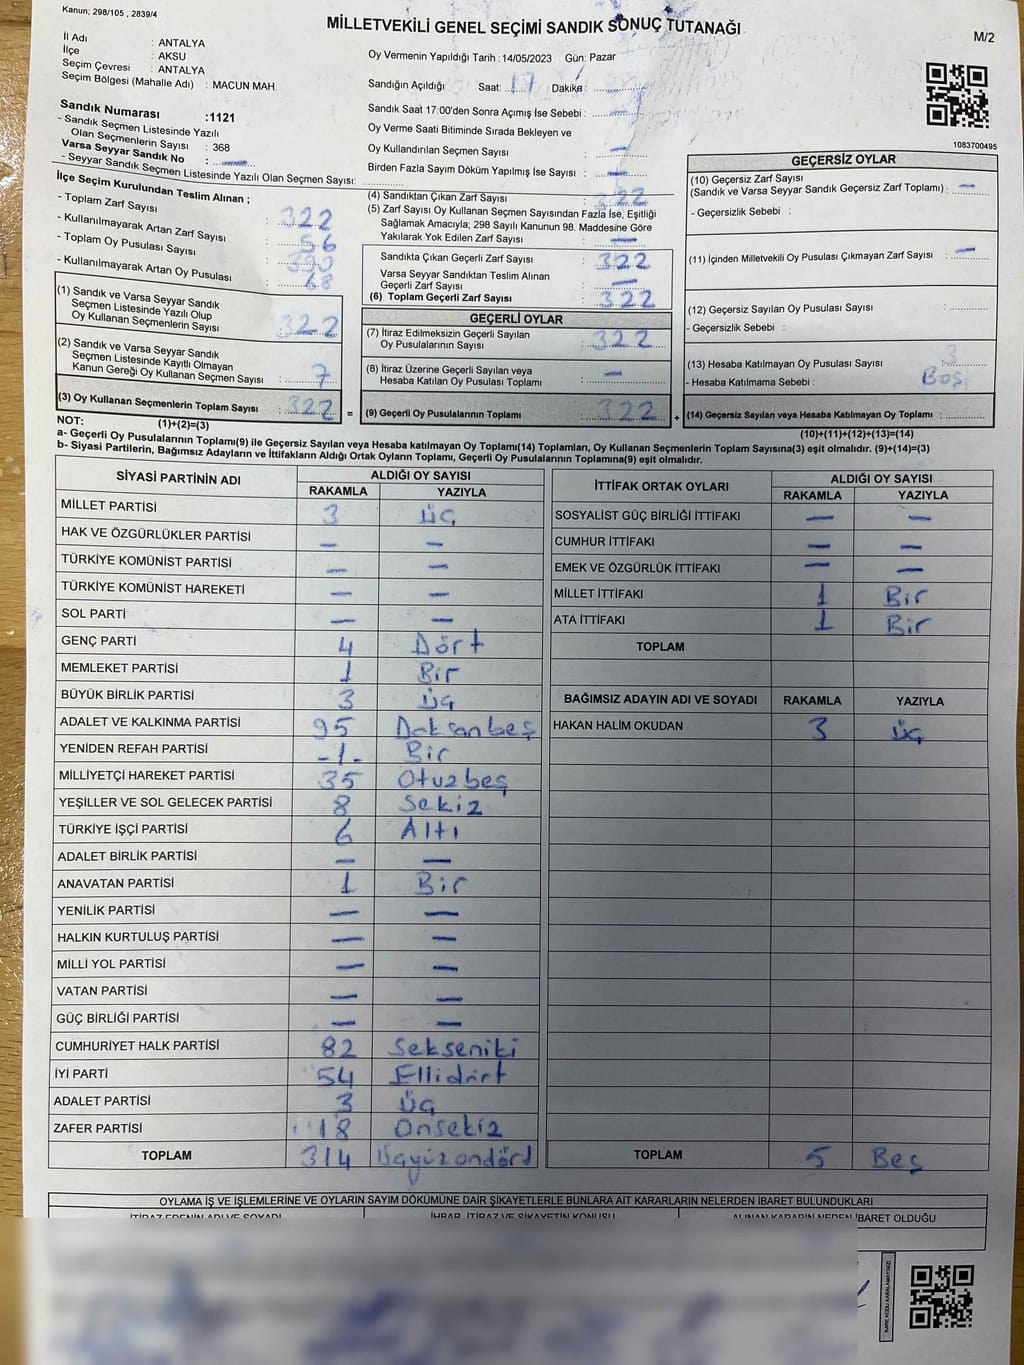 Kanun; 298/105 , 2839/4
MİLLETVEKİLİ GENEL SEÇİMİ SANDIK SONUÇ TUTANAĞI
M/2
İl Adı : ANTALYA
İlçe : AKSU
Seçim Çevresi : ANTALYA
Seçim Bölgesi (Mahalle Adı) : MACUN MAH.
Oy Vermenin Yapıldığı Tarih :14/05/2023 Gün: Pazar
Sandığın Açıldığı Saat: 17 Dakika : —
Sandık Saat 17:00'den Sonra Açımış İse Sebebi : —
Oy Verme Saati Bitiminde Sırada Bekleyen ve
Oy Kullandırılan Seçmen Sayısı : —
Birden Fazla Sayım Döküm Yapılmış İse Sayısı : —
Sandık Numarası :1121
- Sandık Seçmen Listesinde Yazılı
Olan Seçmenlerin Sayısı : 368
Varsa Seyyar Sandık No : —
- Seyyar Sandık Seçmen Listesinde Yazılı Olan Seçmen Sayısı:
1083700495
İlçe Seçim Kurulundan Teslim Alınan ;
- Toplam Zarf Sayısı : 322
- Kullanılmayarak Artan Zarf Sayısı : 56
- Toplam Oy Pusulası Sayısı : 390
- Kullanılmayarak Artan Oy Pusulası : 68
(1) Sandık ve Varsa Seyyar Sandık
Seçmen Listesinde Yazılı Olup
Oy Kullanan Seçmenlerin Sayısı : 322
(2) Sandık ve Varsa Seyyar Sandık
Seçmen Listesinde Kayıtlı Olmayan
Kanun Gereği Oy Kullanan Seçmen Sayısı : 7
(3) Oy Kullanan Seçmenlerin Toplam Sayısı : 322 =
(1)+(2)=(3)
(4) Sandıktan Çıkan Zarf Sayısı : 322
(5) Zarf Sayısı Oy Kullanan Seçmen Sayısından Fazla İse, Eşitliği
Sağlamak Amacıyla; 298 Sayılı Kanunun 98. Maddesine Göre
Yakılarak Yok Edilen Zarf Sayısı : —
Sandıkta Çıkan Geçerli Zarf Sayısı : 322
Varsa Seyyar Sandıktan Teslim Alınan
Geçerli Zarf Sayısı : —
(6) Toplam Geçerli Zarf Sayısı : 322
GEÇERLİ OYLAR
(7) İtiraz Edilmeksizin Geçerli Sayılan
Oy Pusulalarının Sayısı : 322
(8) İtiraz Üzerine Geçerli Sayılan veya
Hesaba Katılan Oy Pusulası Toplamı : —
(9) Geçerli Oy Pusulalarının Toplamı : 322 +
GEÇERSİZ OYLAR
(10) Geçersiz Zarf Sayısı
(Sandık ve Varsa Seyyar Sandık Geçersiz Zarf Toplamı) : —
- Geçersizlik Sebebi :
(11) İçinden Milletvekili Oy Pusulası Çıkmayan Zarf Sayısı : —
(12) Geçersiz Sayılan Oy Pusulası Sayısı :
- Geçersizlik Sebebi :
(13) Hesaba Katılmayan Oy Pusulası Sayısı : 3
- Hesaba Katılmama Sebebi : Boş
(14) Geçersiz Sayılan veya Hesaba Katılmayan Oy Toplamı :
(10)+(11)+(12)+(13)=(14)
NOT:
a- Geçerli Oy Pusulalarının Toplamı(9) ile Geçersiz Sayılan veya Hesaba katılmayan Oy Toplamı(14) Toplamları, Oy Kullanan Seçmenlerin Toplam Sayısına(3) eşit olmalıdır. (9)+(14)=(3)
b- Siyasi Partilerin, Bağımsız Adayların ve İttifakların Aldığı Ortak Oyların Toplamı, Geçerli Oy Pusulalarının Toplamına(9) eşit olmalıdır.
SİYASİ PARTİNİN ADI ALDIĞI OY SAYISI
RAKAMLA YAZIYLA
MİLLET PARTİSİ 3 Üç
HAK VE ÖZGÜRLÜKLER PARTİSİ — —
TÜRKİYE KOMÜNİST PARTİSİ — —
TÜRKİYE KOMÜNİST HAREKETİ — —
SOL PARTİ — —
GENÇ PARTİ 4 Dört
MEMLEKET PARTİSİ 1 Bir
BÜYÜK BİRLİK PARTİSİ 3 Üç
ADALET VE KALKINMA PARTİSİ 95 Doksanbeş
YENİDEN REFAH PARTİSİ -1- Bir
MİLLİYETÇİ HAREKET PARTİSİ 35 Otuzbeş
YEŞİLLER VE SOL GELECEK PARTİSİ 8 Sekiz
TÜRKİYE İŞÇİ PARTİSİ 6 Altı
ADALET BİRLİK PARTİSİ — —
ANAVATAN PARTİSİ 1 Bir
YENİLİK PARTİSİ — —
HALKIN KURTULUŞ PARTİSİ — —
MİLLİ YOL PARTİSİ — —
VATAN PARTİSİ — —
GÜÇ BİRLİĞİ PARTİSİ — —
CUMHURİYET HALK PARTİSİ 82 Sekseniki
İYİ PARTİ 54 Ellidört
ADALET PARTİSİ 3 Üç
ZAFER PARTİSİ 18 Onsekiz
TOPLAM 314 Üçyüzondört
İTTİFAK ORTAK OYLARI ALDIĞI OY SAYISI
RAKAMLA YAZIYLA
SOSYALİST GÜÇ BİRLİĞİ İTTİFAKI — —
CUMHUR İTTİFAKI — —
EMEK VE ÖZGÜRLÜK İTTİFAKI — —
MİLLET İTTİFAKI 1 Bir
ATA İTTİFAKI 1 Bir
TOPLAM
BAĞIMSIZ ADAYIN ADI VE SOYADI RAKAMLA YAZIYLA
HAKAN HALİM OKUDAN 3 Üç
TOPLAM 5 Beş
OYLAMA İŞ VE İŞLEMLERİNE VE OYLARIN SAYIM DÖKÜMÜNE DAİR ŞİKAYETLERLE BUNLARA AİT KARARLARIN NELERDEN İBARET BULUNDUKLARI
İTİRAZ EDENİN ADI VE SOYADI İHBAR, İTİRAZ VE ŞİKAYETİN KONUSU ALINAN KARARIN NEDEN İBARET OLDUĞU
KARE KODU KARALAMAYINIZ!